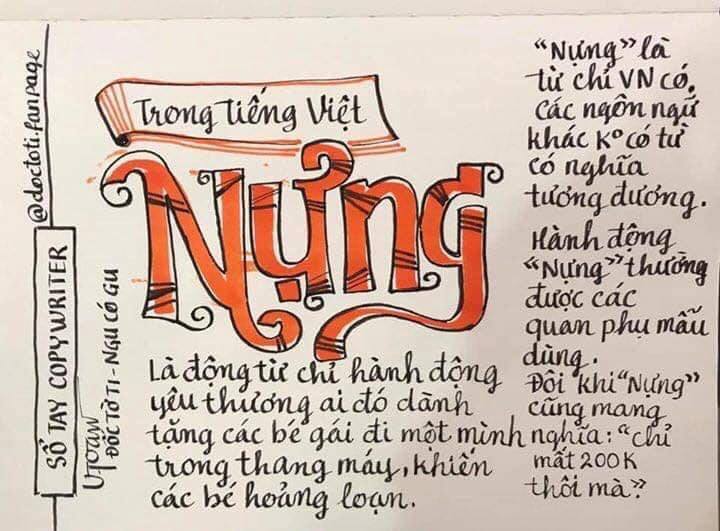 Trong Tiếng Việt
Nựng
Là động từ chỉ hành động
yêu thương ai đó dành
tặng các bé gái đi một mình
trong thang máy, khiến
các bé hoảng loạn.
“Nựng” là
từ chỉ VN có,
các ngôn ngữ
khác K° có từ
có nghĩa
tương đương.
Hành động
“Nựng” thường
được các
quan phụ mẫu
dùng.
Đôi khi “Nựng”
cũng mang
nghĩa: “chỉ
mất 200K
thôi mà”
@doctoti.fanpage
SỔ TAY COPYWRITER
ĐỐC TỜ TI - NGU CÓ GU